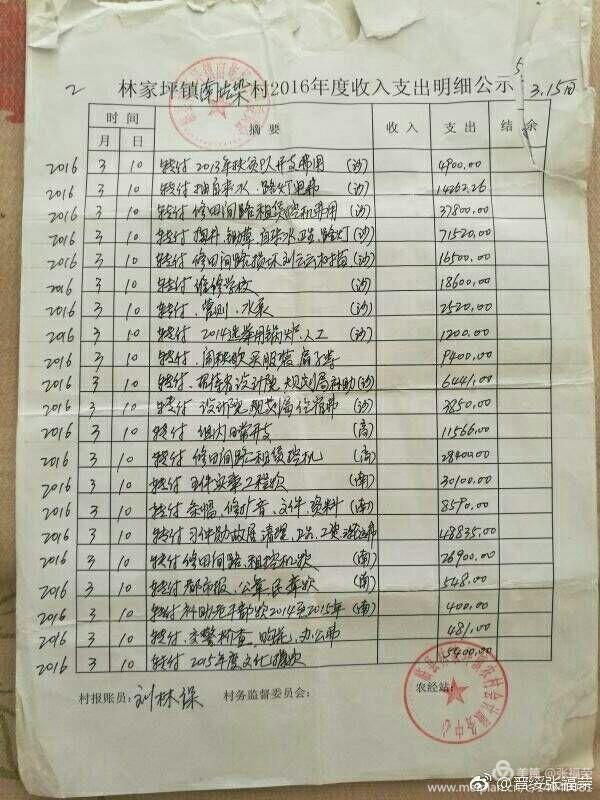 2 林家坪镇南圪垛村2016年度收入支出明细公示 3.15
时间 摘要 收入 支出 结余
月 日
2016 3 10 转付2013年扶贫队开支费用 (沙) 4900.00
2016 3 10 转付 自来水、路灯电费 (沙) 14262.26
2016 3 10 转付 修田间路租赁挖机费用 (沙) 37800.00
2016 3 10 转付 自来水 路灯 (沙) 71520.00
2016 3 10 转付 修田间路损坏刘 树苗 (沙) 16500.00
2016 3 10 转付 维修学校 (沙) 18600.00
2016 3 10 转付、管则、水泵 (沙) 2520.00
2016 3 10 转付 2014选举用锅炉、人工 (沙) 1200.00
2016 3 10 转付、闹秧歌买服装扇子等 9400.00
2016 3 10 转付、 设计院、规划局补助 (沙) 6441.00
2016 3 10 转付 设计院、 住宿费 (沙) 3850.00
2016 3 10 转付 组内日常开支 (南) 11566.00
2016 3 10 转付 修田间路租赁挖机 (南) 28400.00
2016 3 10 转付 工程款 (南) 30100.00
2016 3 10 转付 条幅、修扩音、文件、资料 (南) 8590.00
2016 3 10 转付 故居清理、卫生、工资 48835.00
2016 3 10 转付修田间路、租挖机款 (南) 26900.00
2016 3 10 转付 都市报、公章、民章款 (南) 548.00
2016 3 10 转付 2014至2015年 (南) 400.00
2016 3 10 转付、 检查、购花、办公费 481.00
2016 3 10 转付 2015年度文化 款 5400.00
村报账员：刘林保 村务监督委员会： 农经站：
美篇 @张福荣
@晋绥张福荣